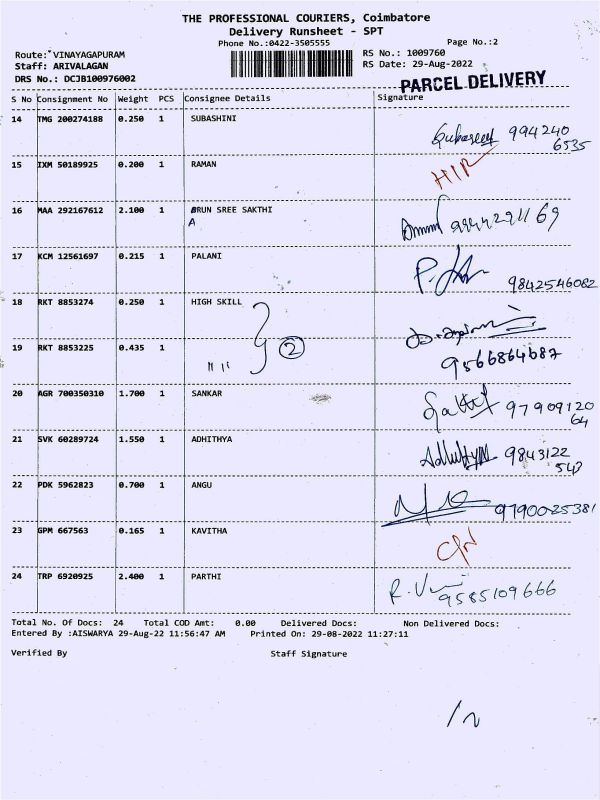 THE PROFESSIONAL COURIERS, Coimbatore
Delivery Runsheet - SPT
Phone No.:0422-3505555 Page No.:2
Route: VINAYAGAPURAM RS No.: 1009760
Staff: ARIVALAGAN RS Date: 29-Aug-2022
DRS No.: DCJB100976002
PARCEL DELIVERY
S No Consignment No Weight PCS Consignee Details Signature
14 TMG 200274188 0.250 1 SUBASHINI
994240
6535
15 IXM 50189925 0.200 1 RAMAN
16 MAA 292167612 2.100 1 BRUN SREE SAKTHI
A
17 KCM 12561697 0.215 1 PALANI
9842546082
18 RKT 8853274 0.250 1 HIGH SKILL
19 RKT 8853225 0.435 1 " "
2
9566864687
20 AGR 700350310 1.700 1 SANKAR
97909120
64
21 SVK 60289724 1.550 1 ADHITHYA
9843122
543
22 PDK 5962823 0.700 1 ANGU
9790025381
23 GPM 667563 0.165 1 KAVITHA
24 TRP 6920925 2.400 1 PARTHI
9585109666
Total No. Of Docs: 24 Total COD Amt: 0.00 Delivered Docs: Non Delivered Docs:
Entered By :AISWARYA 29-Aug-22 11:56:47 AM Printed On: 29-08-2022 11:27:11
Verified By Staff Signature